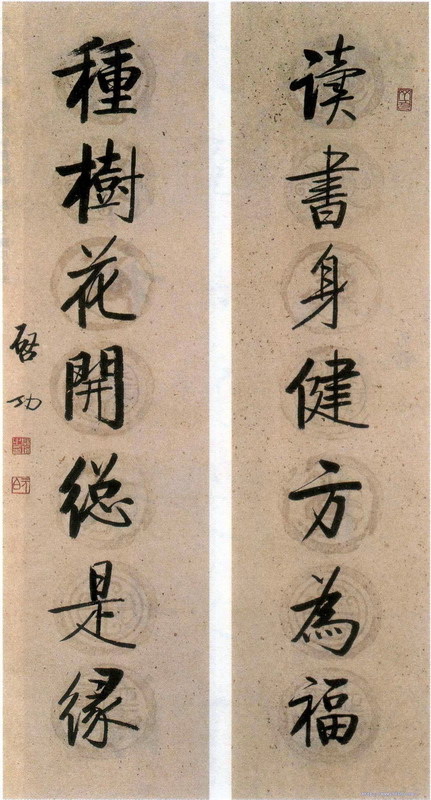 读書身健方為福
種樹花開総是缘
啓功